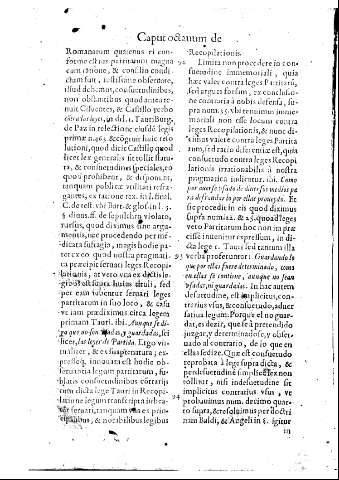 Caput octauum de
Romanarum quatenus ei con-
forme est iur patritarum magna
cum ratione, & consilio condi-
illud debemus, consuetudinibus,
non obstantibus quod ante te-
nuit Cifuentes, & Castillo verbo
in dict. l. 1. Tauri Burg.
de Paz in relectione eiusdē legis
primæ n.463 & cōgruit huic reso-
lutioni, quod dicit Castillo quod
licet lex generalis
ta, & consuetudines speciales, cō
quod prohibent, & disponāt,
tanquam publicæ vtilitati refra-
gantes, ex
C. de
§ dinus. ff. de sepulchro violato,
rursus, quod diximus sine argu-
mentis, nec procedendo per me-
dicata suffragio, magis hodie pa-
ter ex eo quod nostra pragmati-
ca præcipit seruari leges Recopi-
lationis, at vero vita ex dictis le-
gibus est supra huius tituli, sed
per eam iubentur seruari leges
partitarum in suo loco, & casti
ve iam prædiximus circa legem
primam Tauri. ibi. Aunque se di-
ga que no son vsadas, y guardadas, sci
licet, las leyes de Partida. Ergo vti-
mabitur, & ex
expressoq. inouata est hodie ob-
seruantia legum partitarum, su-
blatis consuetudinibus cōtrarijs
cum dicta lege Tauri in Recopi-
latione legum transcripta iubea-
tur seruari, tanquam vna ex prin-
cipalibus, & notabilibus legibus
Recopilationis.
92 Limita non procedere in con-
suetudine immemoriali, quia
hæc valet contra leges Partitarū,
sed argues forsan, ex conclusio-
ne contraria à nobis defensa, su-
pra num. 35. vbi tenuimus imme-
moriali non esse locum contra
leges Recopilationis, & nunc di-
cimus valere contra leges Partita
rum, sed ratio differentiæ est, quia
consuetudo contra leges Recopi
lationis irrationabilis à nostra
pragmatica iudicetur. ibi. Como
por auerse vsado de diuersos medios pa
ra defraudar lo por ellas proueydo. Et
sic procedit in eis quod diximus
supra num.12. & 23. quod leges
vero Partitarum hoc non ita pri-
inuenitur expressum, in di-
cta lege 1. Tauri sed tantum illa
93 verba proferuntur: Guardando lo
que por ellas fuere determinado, como
en ellas se contiene, aunque no sean
vsadas, ni guardadas. In hac autem
desuetudine, est implicitus, con-
trarius vsus, & consuetudo, aduer
satiua legum. Porque el no guar-
dar, es dezir, que se à pretendido
juzgar, y determinado, y obser-
uado al contrario, de lo que en
ellas se dize. Quæ est consuetudo
reprobata à lege supra dicta, &
per desuetudinē simplicē lex non
tollitur, nisi in desuetudine sit
implicitus contrarius vsus, vt
94 probauimus num. decimo quar-
to supra, & resoluimus per doctri
nam Baldi, & Angeli in §. igitur
in